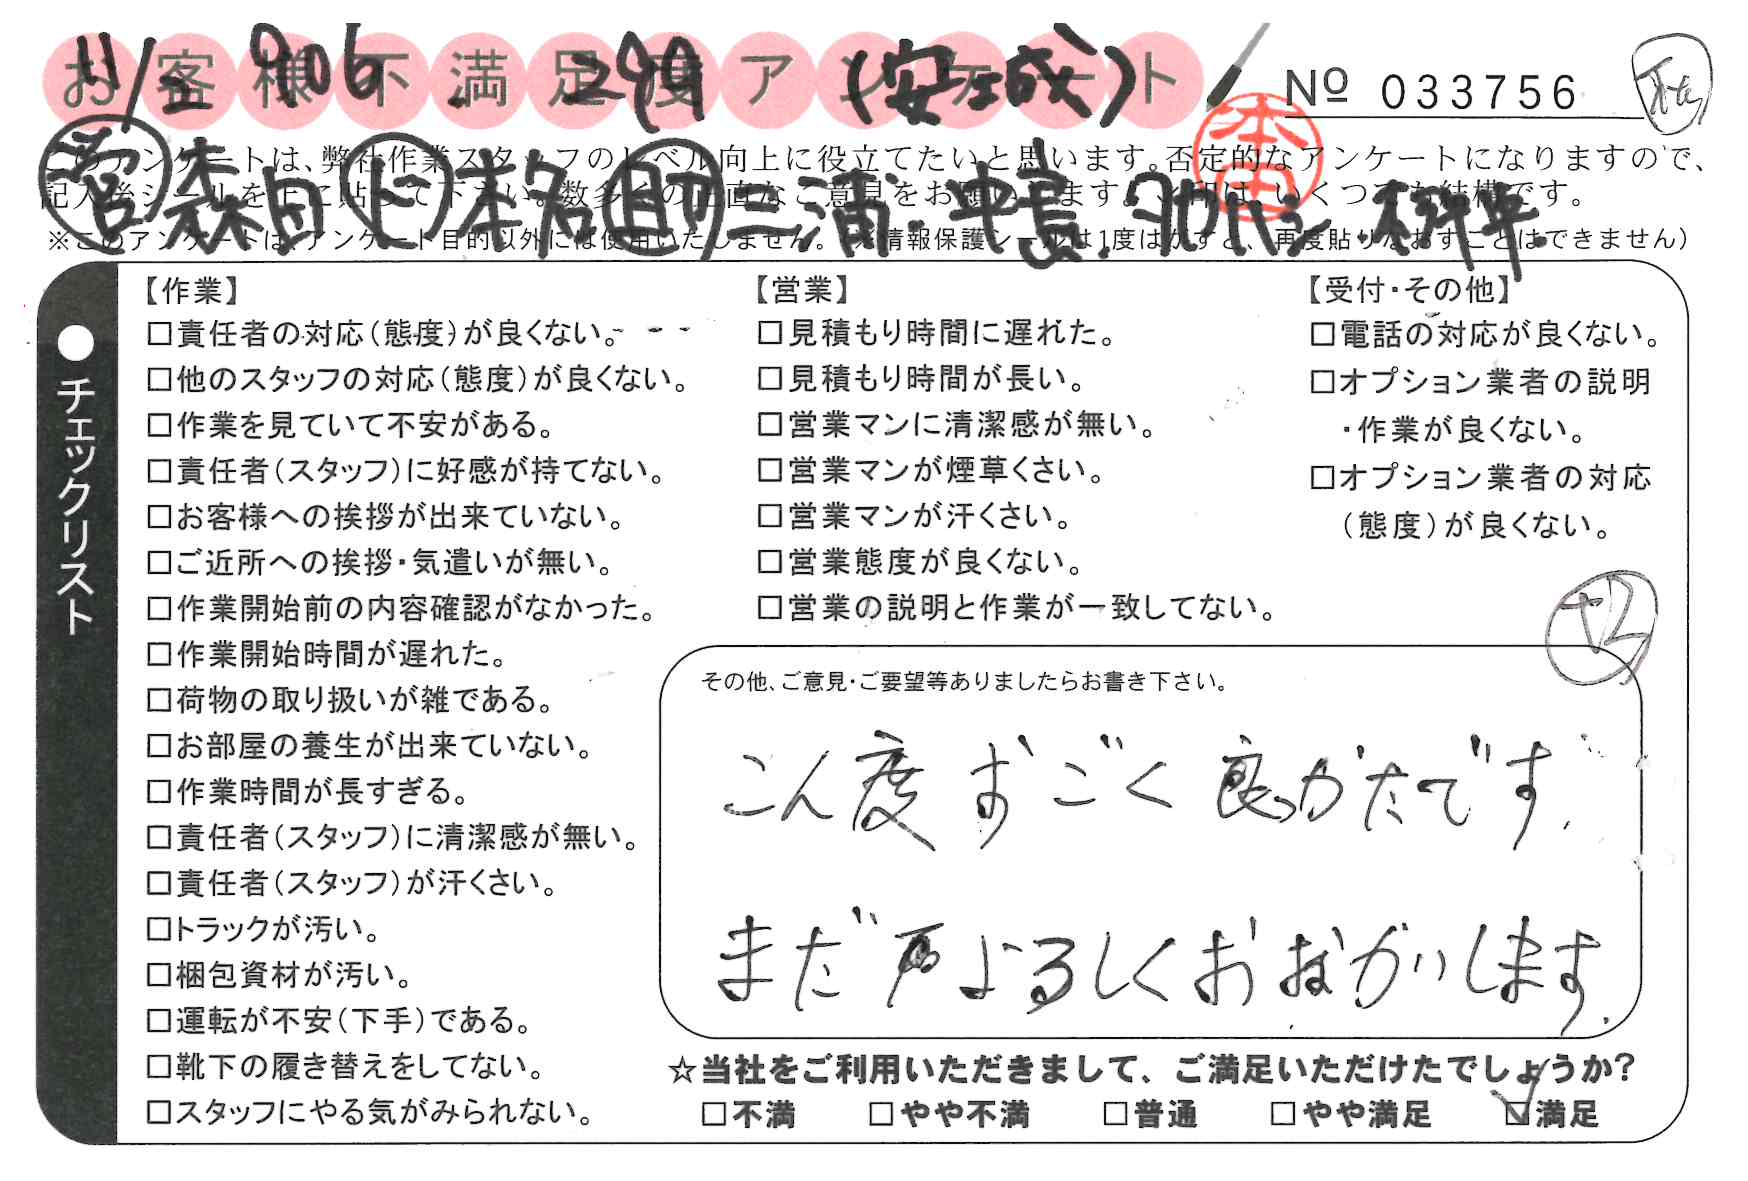 お客様不満足度アンケート
11/2 906 299 (安in成)
№ 033756
このアンケートは、弊社作業スタッフのレベル向上に役立てたいと思います。否定的なアンケートになりますので、
記入後シールを上に貼って下さい。数多くの正直なご意見をお願いします。×印は、いくつでも結構です。
※このアンケートは、アンケート目的以外には使用いたしません。(※情報保護シールは1度はがすと、再度貼りなおすことはできません)
営 森田 ド 本名 助 三浦
本田
チェックリスト
【作業】
□責任者の対応(態度)が良くない。
□他のスタッフの対応(態度)が良くない。
□作業を見ていて不安がある。
□責任者(スタッフ)に好感が持てない。
□お客様への挨拶が出来ていない。
□ご近所への挨拶・気遣いが無い。
□作業開始前の内容確認がなかった。
□作業開始時間が遅れた。
□荷物の取り扱いが雑である。
□お部屋の養生が出来ていない。
□作業時間が長すぎる。
□責任者(スタッフ)に清潔感が無い。
□責任者(スタッフ)が汗くさい。
□トラックが汚い。
□梱包資材が汚い。
□運転が不安(下手)である。
□靴下の履き替えをしてない。
□スタッフにやる気がみられない。
【営業】
□見積もり時間に遅れた。
□見積もり時間が長い。
□営業マンに清潔感が無い。
□営業マンが煙草くさい。
□営業マンが汗くさい。
□営業態度が良くない。
□営業の説明と作業が一致してない。
【受付・その他】
□電話の対応が良くない。
□オプション業者の説明
・作業が良くない。
□オプション業者の対応
(態度)が良くない。
その他、ご意見・ご要望等ありましたらお書き下さい。
こん度ずごく良っかたでず.
まだ゛よるしくおねがいします.
☆当社をご利用いただきまして、ご満足いただけたでしょうか?
□不満 □やや不満 □普通 □やや満足 ☑満足